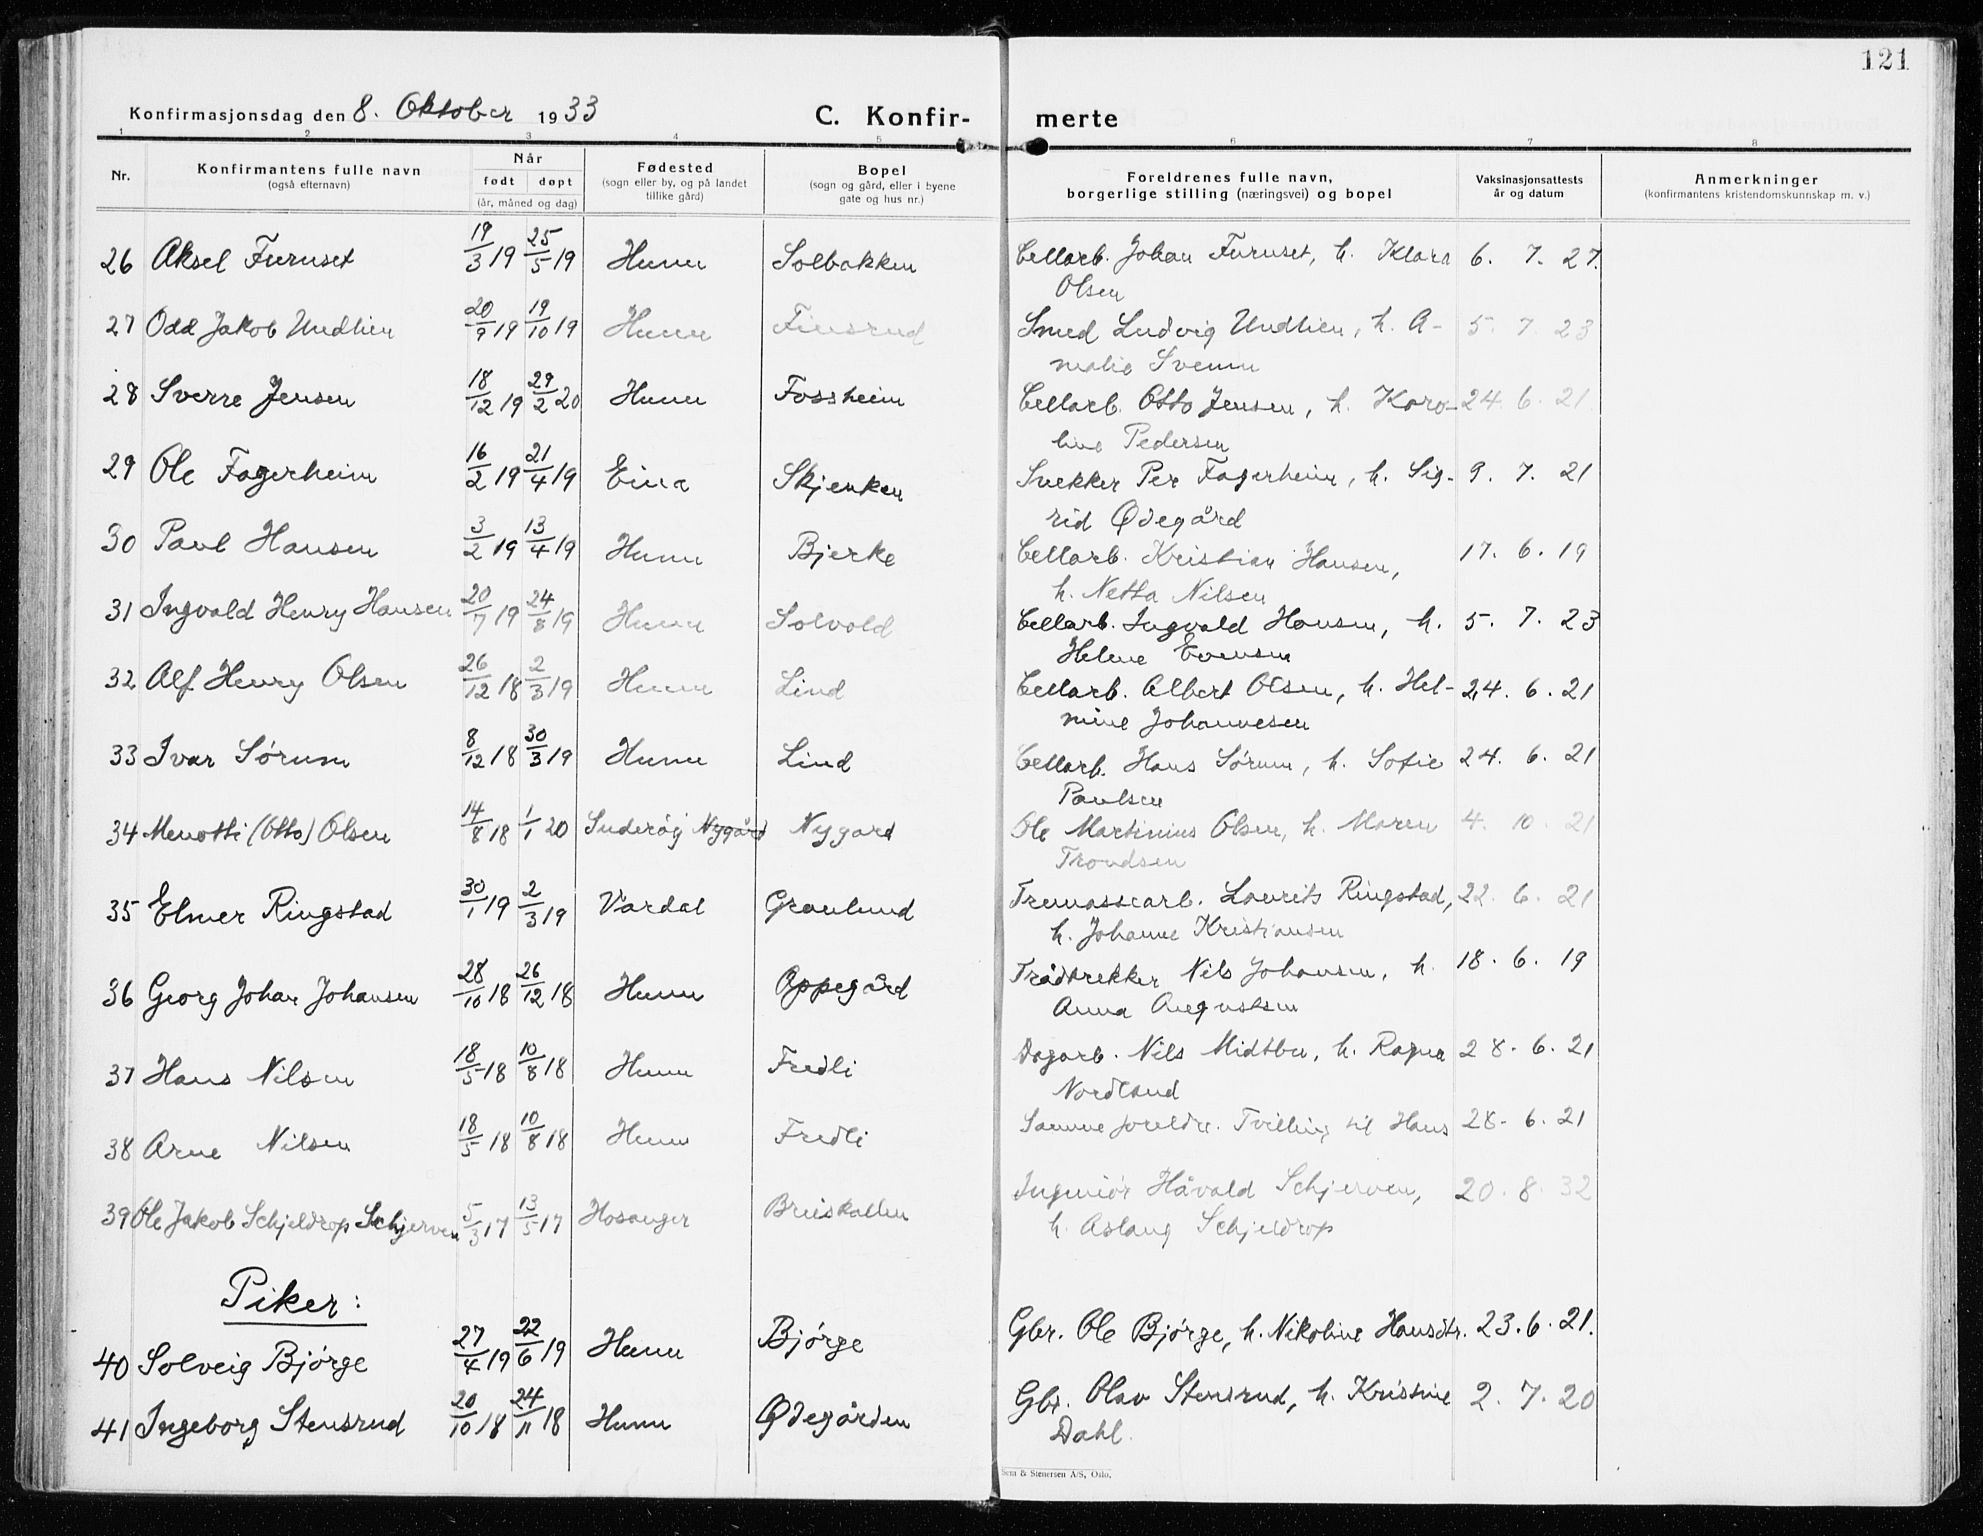 121
Konfirmasjonsdag den 8. Oktober 1933
C. Konfir- merte
1 2 3 4 5 6 7 8
Nr.
Konfirmantens fulle navn
(også efternavn)
Når
født døpt
(år, måned og dag)
Fødested
(sogn eller by, og på landet
tillike gård)
Bopel
(sogn og gård, eller i byene
gate og hus nr.)
Foreldrenes fulle navn,
borgerlige stilling (næringsvei) og bopel
Vaksinasjonsattests
år og datum
Anmerkninger
(konfirmantens kristendomskunnskap m. v.)
26 Aksel Furuset 19/3 19 25/5 19 Hunn Solbakken Cellarb. Johan Furuset, h. Klara 6. 7. 27.
Olsen
27 Odd Jakob Undlien 20/9 19 19/10 19 Hunn Finsrud Smed Ludvig Undlien, h. A- 5. 7. 23
malie Svenn
28 Sverre Jensen 18/12 19 29/2 20 Hunn Fossheim Cellarb. Otto Jensen, h. Karo- 24. 6. 21
line Pedersen
29 Ole Fagerheim 16/2 19 21/4 19 Eina Skjenken Snekker Per Fagerheim, h. Sig- 9. 7. 21
rid Ødegård
30 Paul Hansen 3/2 19 13/4 19 Hunn Bjerke Cellarb. Kristian Hansen, 17. 6. 19
h. Netta Nilsen
31 Ingvald Henry Hansen 20/7 19 24/8 19 Hunn Solvold Cellarb. Ingvald Hansen, h. 5. 7. 23
Helene Evensen
32 Alf Henry Olsen 26/12 18 2/3 19 Hunn Lind Cellarb. Albert Olsen, h. Hel- 24. 6. 21
mine Johannesen
33 Ivar Sørum 8/12 18 30/3 19 Hunn Lind Cellarb. Hans Sørum, h. Sofie 24. 6. 21
Paulsen
34 Menotti (Otto) Olsen 14/8 18 1/1 20 Suderøy Nygård Nygard Ole Martinius Olsen, h. Maren 4. 10. 21
Trondsen
35 Elmer Ringstad 30/1 19 2/3 19 Vardal Granlund Tremassearb. Laurits Ringstad, 22. 6. 21
h. Johanne Kristiansen
36 Georg Johan Johansen 28/10 18 26/12 18 Hunn Oppegård Trådtrekker Nils Johansen, h. 18. 6. 19
Anna Augustsen
37 Hans Nilsen 18/5 18 10/8 18 Hunn Fredli Dagarb. Nils Midtbu, h. Ragna 28. 6. 21
Nordland
38 Arne Nilsen 18/5 18 10/8 18 Hunn Fredli Samme foreldre. Tvilling til Hans 28. 6. 21
39 Ole Jakob Schjeldrop Schjerven 5/3 17 13/5 17 Hosanger Breiskallen Ingeniør Håvald Schjerven, 20. 8. 32
h. Aslaug Schjeldrop
Piker:
40 Solveig Bjørge 27/4 19 22/6 19 Hunn Bjørge Gbr. Ole Bjørge, h. Nikoline Hansdtr. 23. 6. 21.
41 Ingeborg Stensrud 20/10 18 24/11 18 Hunn Ødegården Gbr. Olav Stensrud, h. Kristine 2. 7. 20
Dahl.
Sem & Stenersen A/S, Oslo.